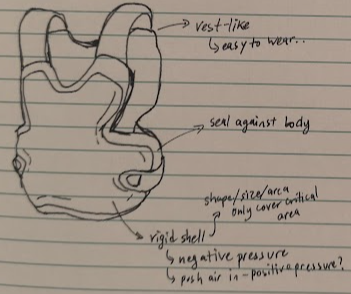 vest-like
↳ easy to wear..
seal against body
shape/size/area
only cover critical
area
rigid shell
↳ negative pressure
↳ push air in - positive pressure?